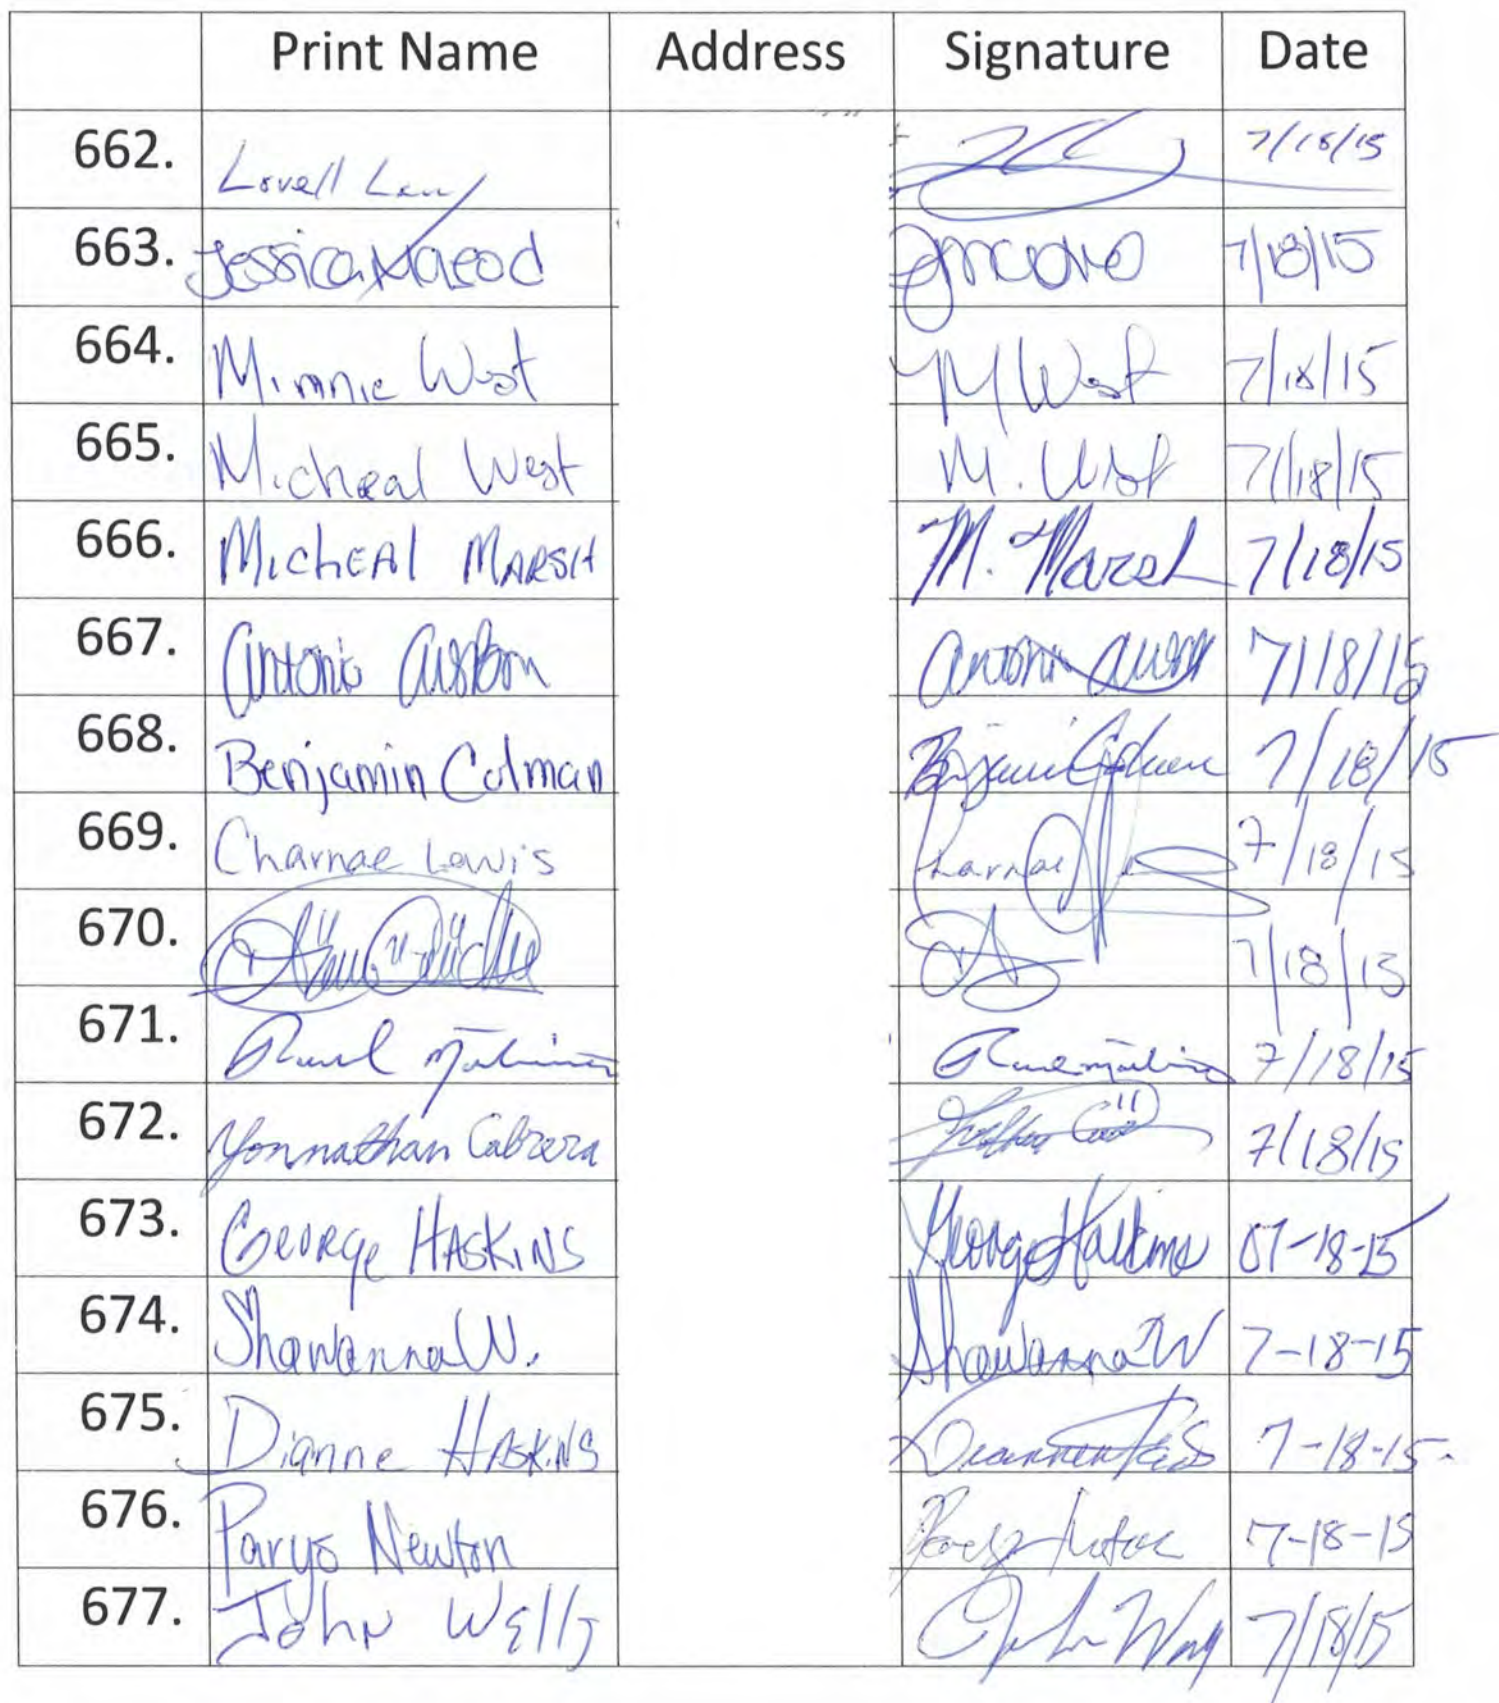 Print Name Address Signature Date
662. Lovell 7/18/15
663. Jessica McLeod 7/18/15
664. Minnie West M West 7/18/15
665. Micheal West M. West 7/18/15
666. MichEAl MARSH M. Marsh 7/18/15
667. Antonio Austion 7/18/15
668. Benjamin Colman Benjamin Colman 7/18/15
669. Charnae Lewis Charnae 7/18/15
670. 7/18/15
671. 7/18/15
672. Yonnathan Cabrera 7/18/15
673. George HASKINS George Haskins 07-18-15
674. Shawanna W. Shawanna W 7-18-15
675. Dianne HASKINS 7-18-15
676. Parys Newton 7-18-15
677. John Wells John 7/18/15